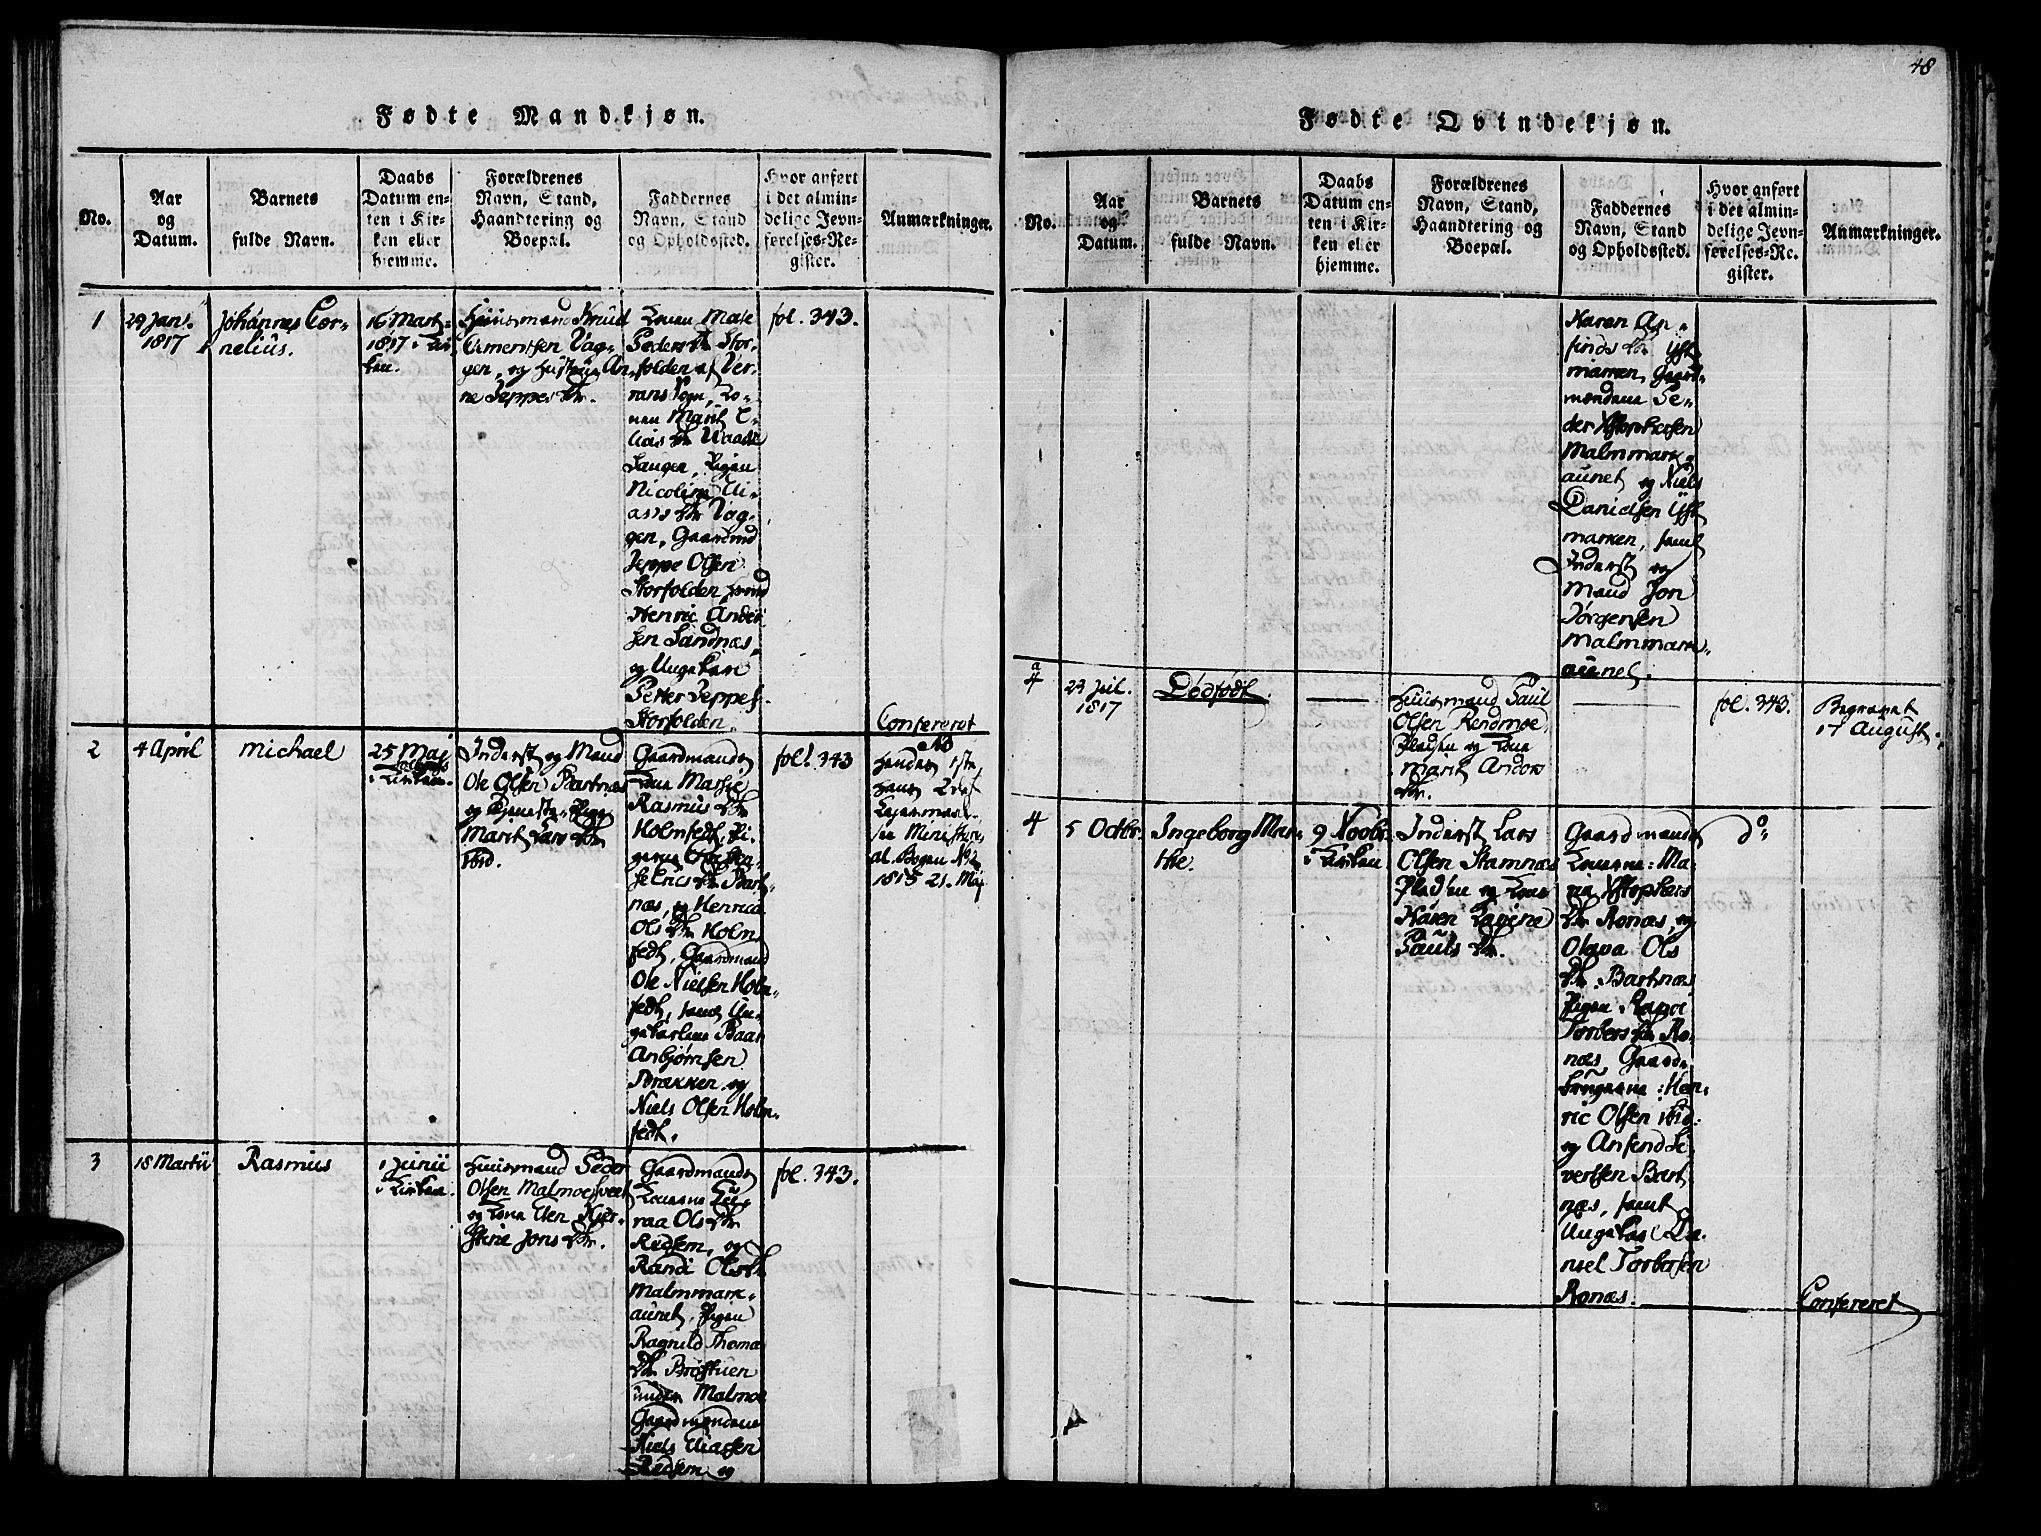 48
Fødte Mandkjøn.
No.
Aar
og
Datum.
Barnets
fulde Navn.
Daabs
Datum en-
ten i Kir-
ken eller
hjemme.
Forældrenes
Navn, Stand,
Haandtering og
Boepæl.
Faddernes
Navn, Stand
og Opholdssted.
Hvor anført
i det almin-
delige Jevn-
førelses-Re-
gister.
Anmærkninger.
1
29 Jan.
1817
Johannes Cor-
nelius.
16 Mart.
1817 i Kir-
ken.
Huusmand Knud
Clmentsen Vag-
gen, og Hustrue An-
ne Jeppes Dtr.
Konen Male
Peders Dtr Stor-
folden af Ver-
rans Sogn, Ko-
nen Marit E-
lias Dtr Vaade
Saugen, Pigen
Nicoline Eli-
asis Dtr Vag-
gen, Gaardmd
Jeppe Olsen
Storfolden,
Henric Ander-
sen Sandnæs,
og Ungekarl
Petter Jeppes.
Storfolden.
fol. 343.
2
4 April
Michael
25 Maj
i Kirken.
Inderst og Mand
Ole Olsen Bartnæs
og Tjeneste-Pige
Marit Lars Dtr
ibid.
Gaardmands
Kone Mathie
Rasmus Dtr
Holmfedt, Pi-
gerne
Erics Dtr Bart-
næs, og Henrica
Ols Dtr Holm
fedt, Gaardmand
Ole Nielsen Holm-
fedt, samt Un-
gekarlene Baar
Anbjørnsen
Brækken og
Niels Olsen Holm-
fedt.
fol. 343
Confereret
NB
1815 21. Maj
3
18 Martii
Rasmus
1 Junii
i Kirken.
Huusmand Peder
Olsen Malmoesveet
og Kone Elen Kier-
stine Jons Dtr.
Gaardmands
Konerne Gu-
raa Ols Dtr
Rædsem, og
Randi Ols Dtr
Malmmark-
aunet, Pigen
Ragnild Thomæ
Dtr Brøstuen
under Malmoe
Gaardmændene
Niels Eliassen
Rædsem og
fol. 343.
Fødte Qvindekjøn.
No.
Aar
og
Datum.
Barnets
fulde Navn.
Daabs
Datum en-
ten i Kir-
ken eller
hjemme.
Forældrenes
Navn, Stand,
Haandtering og
Boepæl.
Faddernes
Navn, Stand
og Opholdssted.
Hvor anført
i det almin-
delige Jevn-
førelses-Re-
gister.
Anmærkninger.
Karen An-
finds Dtr Ystt
marken, Gaard-
mændene Pe-
der Xstophersen
Malmmark
aunet og Niels
Danielsen Ystt
marken, samt
Inderst og
Mand Jon
Jørgensen
Malmmark-
aunet.
a
4
29 Jul.
1817
Dødfødt
Huusmand Paul
Olsen Rendmoe
Pladsen og Kone
Marit Andors
Dtr.
fol. 343.
Begravet
17 August.
4
5 Octbr.
Ingeborg Mar-
the.
9 Novbr.
i Kirken
Inderst Lars
Olsen Stamnæs
Pladsen og Kone
Karen Lavine
Pauls Dtr.
Gaardmands
Konerne: Ma-
ria Xstophers
Dtr Ronæs, og
Olava Ols
Dtr. Bartnæs
Pigen
Torbers Dtr Ro-
næs Gaard-
brugerne: Hen-
ric Olsen ibid.
og Anfend Si-
vertsen Bart
næs, samt
Ungekarl Da-
niel Torbersen
Ronæs.
do
Confereret